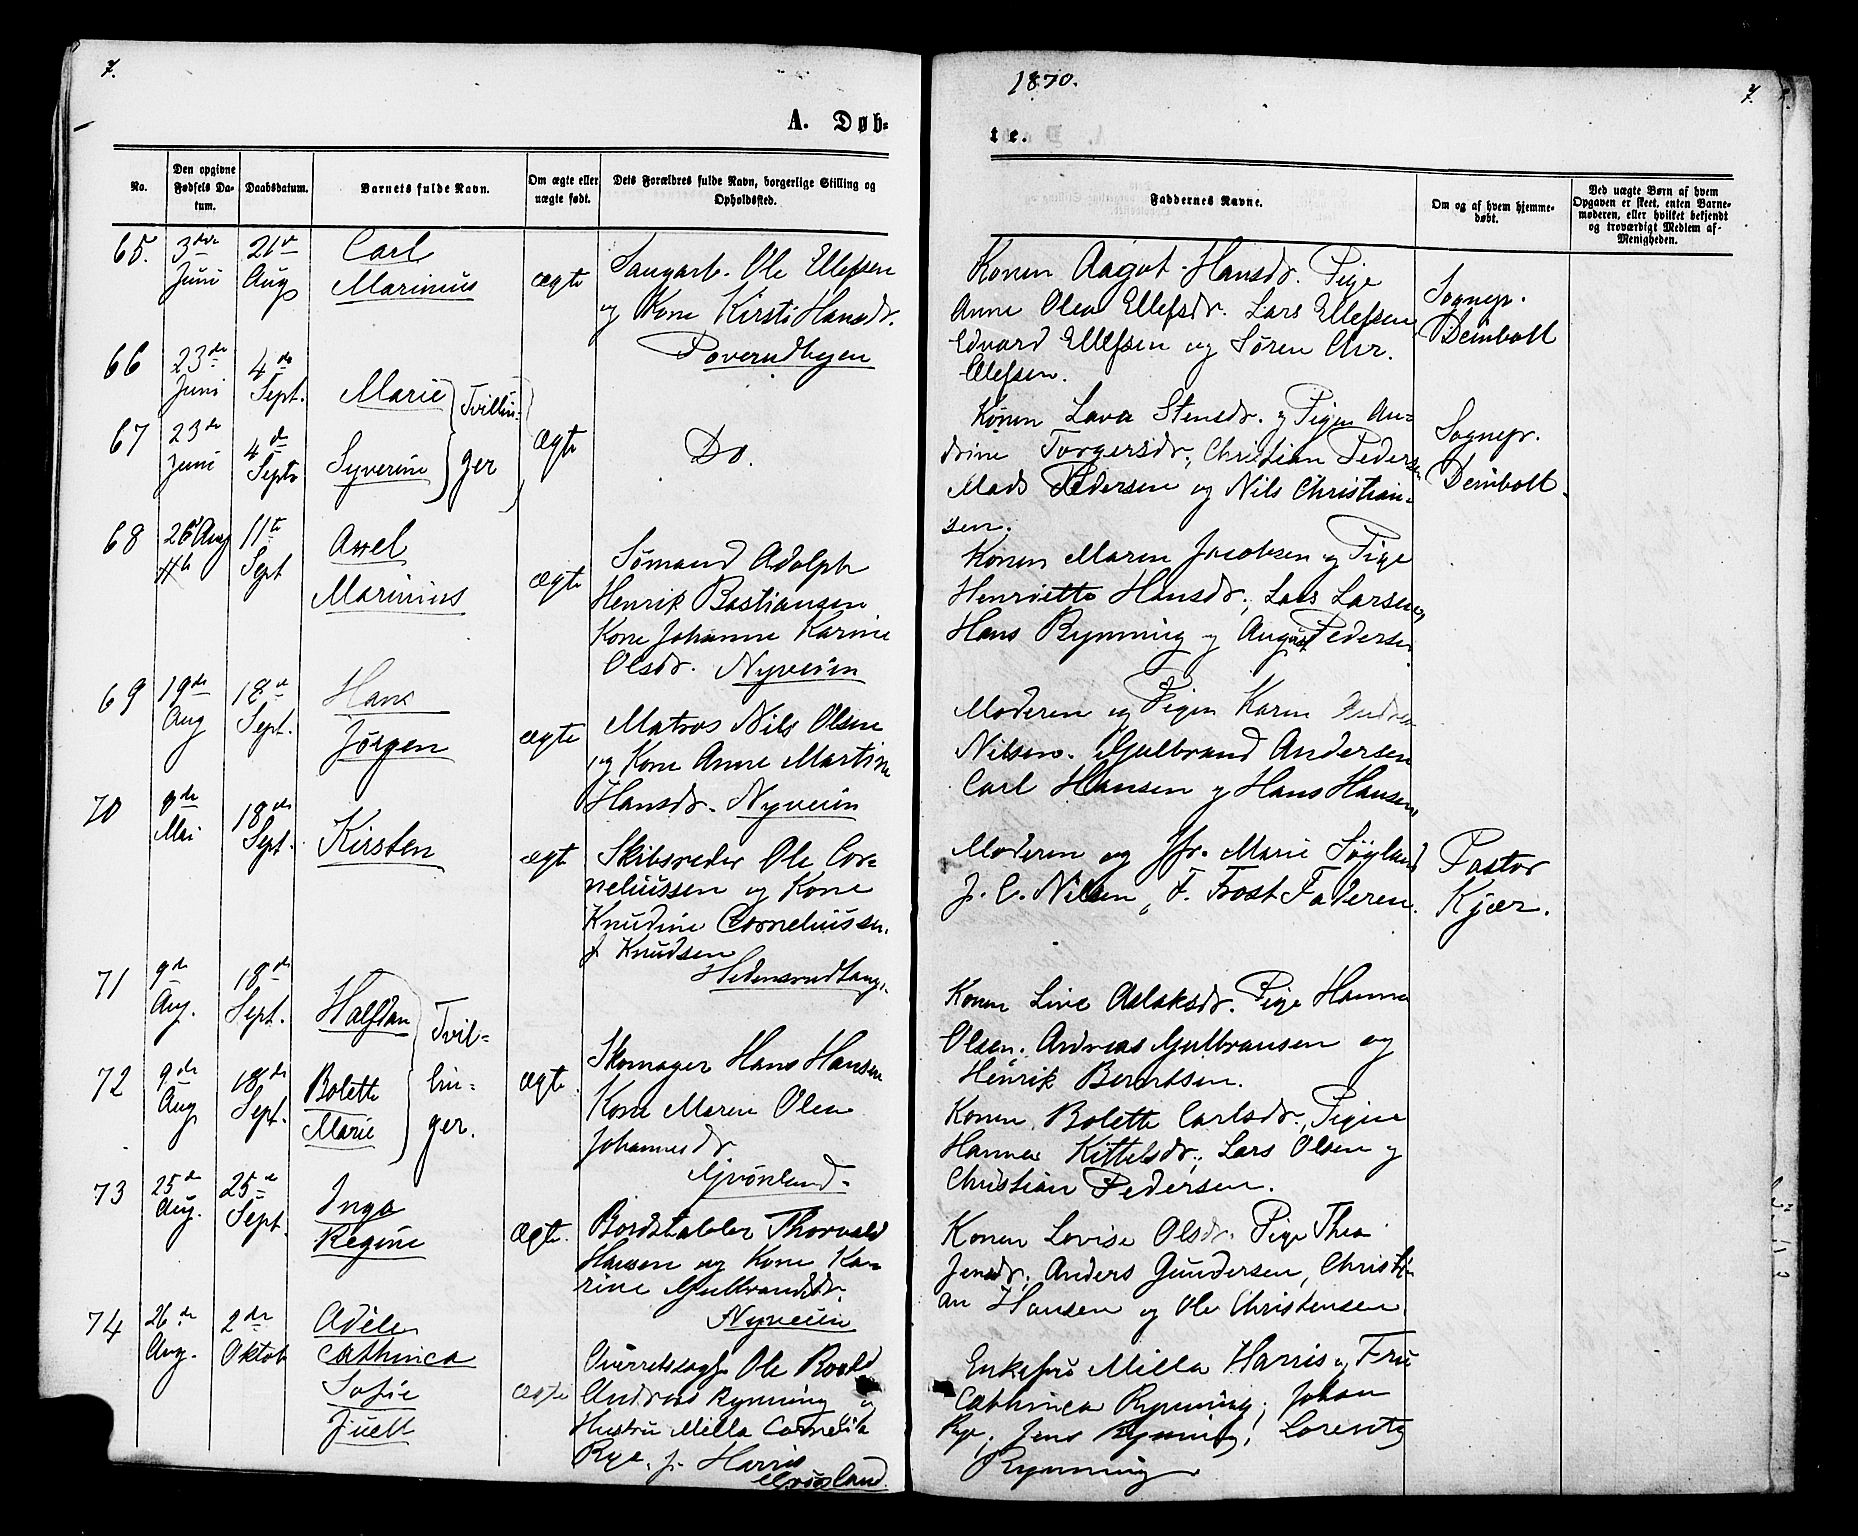 7.
1870.
7.
A. Døb-
te.
No.
Den opgivne Fødsels Da-
tum.
Daabsdatum.
Barnets fulde Navn.
Om ægte eller
uægte født.
Dets Forældres fulde Navn, borgerlige Stilling og
Opholdssted.
Faddernes Navne.
Om og af hvem hjemme-
døbt.
Ved uægte Børn af hvem
Opgaven er skeet, enten Barne-
moderen, eller hvilket bekjendt
og troværdigt Medlem af
Menigheden.
65. 3die Juni 21de Aug
Carl
Marinius
ægte
Saugarb. Ole Ellefsen
og Kone Kirsti Hansdr.
Poverudbyen
Konen Aagot Hansdr. Pige
Anne Olea Ellefsdr. Lars Ellefsen
Edvard Ellefsen og Søren Chr.
Olefsen.
Sognepr.
Deinboll
66 23de Juni 4de Sept.
Marie
67 23de Juni 4de Sept
Syverine
Tvillin-
ger
ægte
Do.
Konen Lava Stensdr. og Pigen An-
drine Torgersdr., Christian Pedersen
Mads Pedersen og Nils Christian-
sen.
Sognepr.
Deinboll.
68 26 Aug 11te Sept
Axel
Marinius
ægte
Sømand Adolph
Henrik Bastiansen
Kone Johanne Karine
Olsdr. Nyveien
Konen Maren Jacobsen og Pige
Henriette Hansdr., Lars Larsen,
Hans Rynning og August Pedersen.
69 19de Aug 18de Sept.
Hans
Jörgen
ægte
Matros Nils Olsen
og Kone Anne Martine
Hansdr. Nyveien
Moderen og Pigen Karen
Nilsen. Gulbrand Andersen
Carl Hansen og Hans Hansen,
70 9de Mai 18de Sept.
Kirsten
ægte
Skibsreder Ole Cor-
neliussen og Kone
Knudine Corneliussen,
f. Knudsen
Moderen og Jfr. Marie
J. C. Nilsen, F. Frost Faderen.
Pastor
Kjær.
71 9de Aug. 18de Sept.
Halfdan
72 9de Aug 18de Sept.
Bolette
Marie
Tvil-
lin-
ger.
ægte.
Skomager Hans Hansen
Kone Maren Olea
Johannesdr
Grönland.
Konen Live Aslaksdr. Pige Hanna
Olsen, Andreas Gulbransen og
Henrik Berntsen.
Konen Bolette Carlsdr., Pigen
Hanna Kittelsdr., Lars Olsen og
Christian Pedersen.
73 25de Aug. 25de Sept.
Inga
Regine
ægte.
Bordstabler Thorvald
Hansen og Kone Ka-
rine Gulbrandsdr.
Nyveien
Konen Lovise Olsdr. Pige Thea
Jensdr. Anders Gundersen, Christi-
an Hansen og Ole Christensen
74 26de Aug. 2den Oktob
Adèle
Cathinca
Sofie
Juell
ægte
Overretssagf. Ole Roald
Andreas Rynning og
Hustru Milla Cornelia
Rye, f. Harris
Grönland.
Enkefru Milla Harris og Fru
Cathinca Rynning, Johan
Rye, Jens Rynning, Lorentz
Rynning